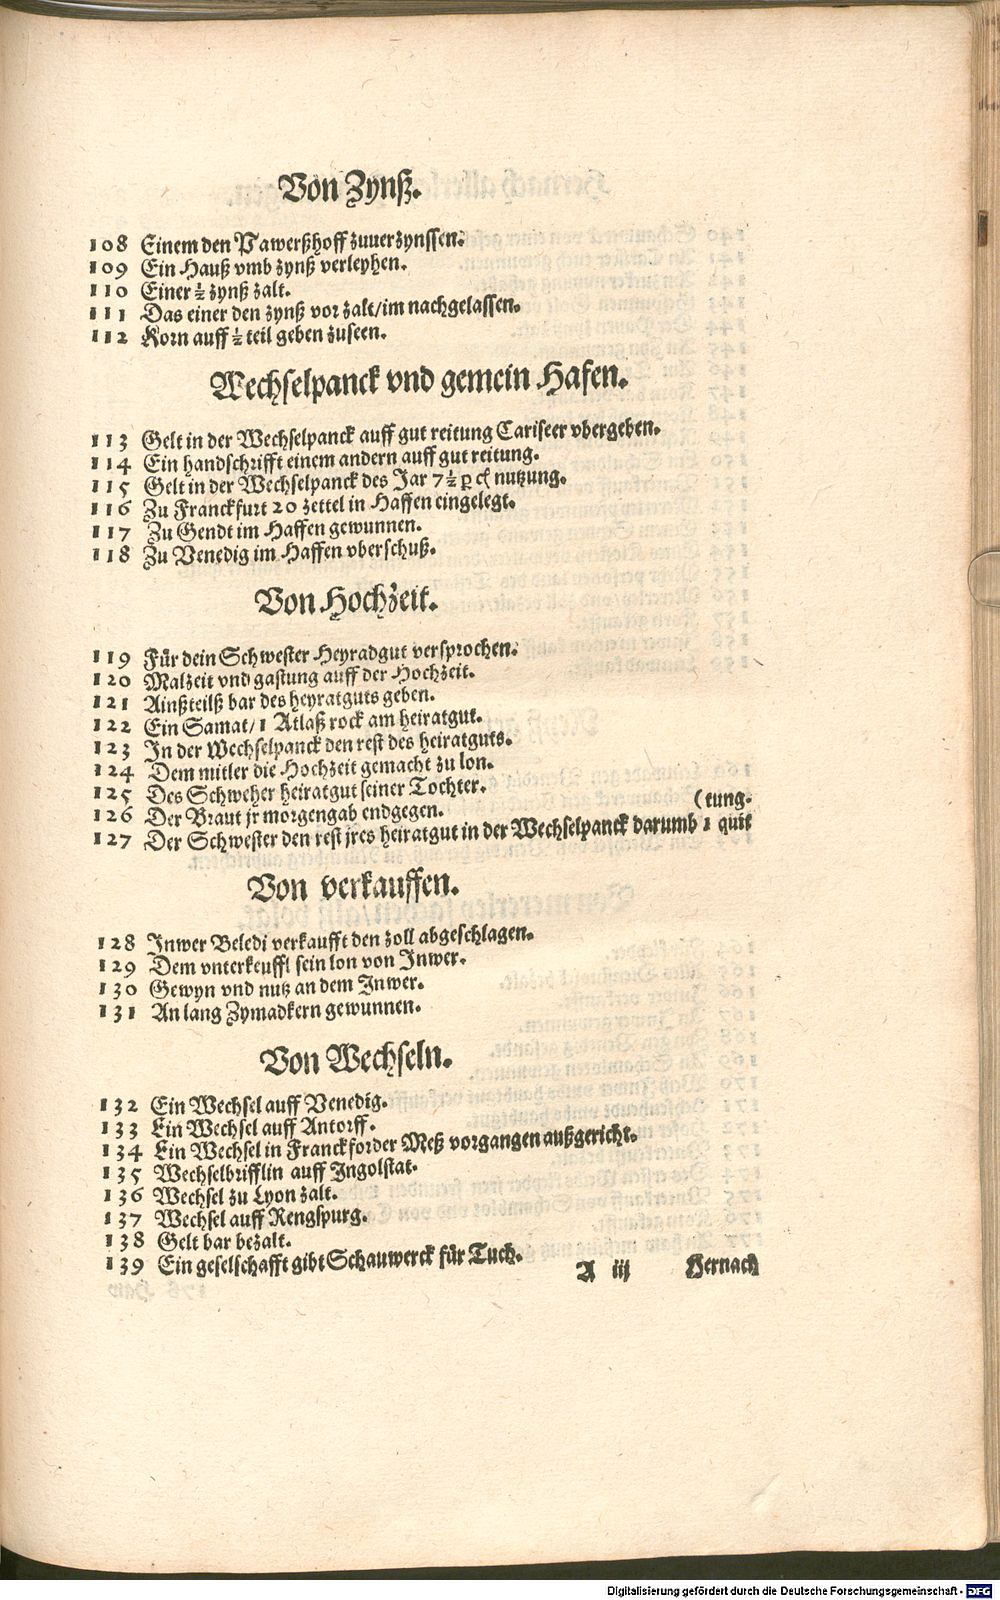 Von Zynß.
108 Einem den Pawerßhoff zuuerzynssen.
109 Ein Hauß vmb zynß verleyhen.
110 Einer ½ zynß zalt.
111 Das einer den zynß vor zalt/im nachgelassen.
112 Korn auff ½ teil geben zuseen.
Wechselpanck vnd gemein Hafen.
113 Gelt in der Wechselpanck auff gut reitung Cariseer vbergeben.
114 Ein handschrifft einem andern auff gut reitung.
115 Gelt in der Wechselpanck des Jar 7½ p cͦ nutzung.
116 Zu Franckfurt 20 zettel in Haffen eingelegt.
117 Zu Gendt im Haffen gewunnen.
118 Zu Venedig im Haffen vberschuß.
Von Hochzeit.
119 Für dein Schwester Heyradgut versprochen.
120 Malzeit vnd gastung auff der Hochzeit.
121 Ainßteilß bar des heyratguts geben.
122 Ein Samat/1 Atlaß rock am heiratgut.
123 In der Wechselpanck den rest des heiratguts.
124 Dem mitler die Hochzeit gemacht zu lon.
125 Des Schweher heiratgut seiner Tochter.
126 Der Braut jr morgengab endgegen. (tung.
127 Der Schwester den rest jres heiratgut in der Wechselpanck darumb 1 quit
Von verkauffen.
128 Inwer Beledi verkaufft den zoll abgeschlagen.
129 Dem vnterkeuffl sein lon von Inwer.
130 Gewyn vnd nutz an dem Inwer.
131 An lang Zymadkern gewunnen.
Von Wechseln.
132 Ein Wechsel auff Venedig.
133 Ein Wechsel auff Antorff.
134 Ein Wechsel in Franckforder Meß vorgangen außgericht.
135 Wechselbrifflin auff Ingolstat.
136 Wechsel zu Lyon zalt.
137 Wechsel auff Rengspurg.
138 Gelt bar bezalt.
139 Ein geselschafft gibt Schauwerck für Tuch.
A iij Hernach
Digitalisierung gefördert durch die Deutsche Forschungsgemeinschaft - DFG